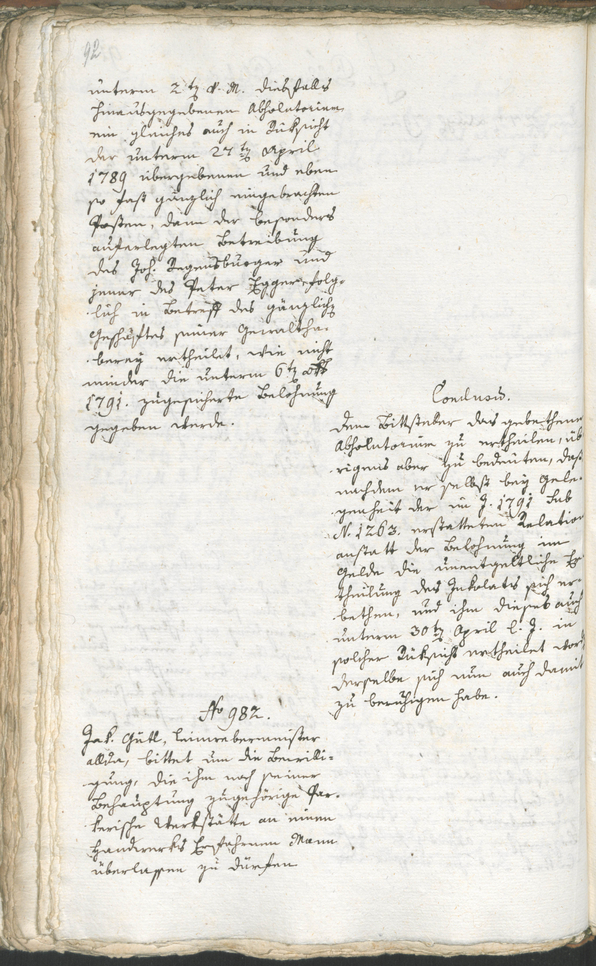 92
unterm 2t v. M. diesfalls
hinausgegebenen Absolutorium
ein gleiches auch in Rüksicht
der unterm 27tn April
1789 übergebenen und eben
so fast gänzlich eingebrachten
Posten, dann der besonders
auferlegten Betreibung
des Joh. Regensburger und
jener des Peter Egger, folg-
lich in Betreff des gänzlichen
Geschäftes seiner Gewaltha-
berey ertheilet, wie nicht
minder die unterm 6tn
1791. zugesicherte Belohnung
gegeben werde.
Conclusum.
Dem Bittsteller das gebethene
Absolutorium zu ertheilen, üb
rigens aber zu bedeuten, daß
nachdem er selbst bey Gele-
genheit der im J. 1791 sub
N. 1263. erstatteten Relation
anstatt der Belohnung im
Gelde die unentgeltliche Er-
theilung des Inkolats sich er-
bethen, und ihm dieses auch
unterm 30tn April l. J. in
solcher Rüksicht ertheilet word
derselbe sich nun auch damit
zu beruhigen habe.
No 982.
Jak. Gütl,
allda, bittet um die Bewilli-
gung, die ihm nach seiner
Behauptung zugehörige
Werkstätte an einen
Handwerks Erfahrnen Mann
überlassen zu dürfen